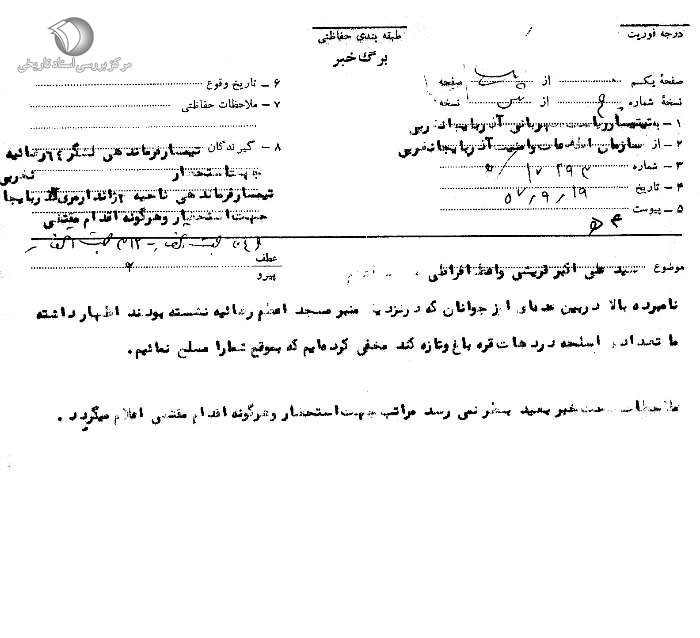 مرکز بررسی اسناد تاریخی
طبقه بندی حفاظتی
برگ خبر
درجه فوریت
صفحهٔ یکم از صفحه
نسخهٔ شماره از نسخه
۱ – به تیمسار ریاست شهربانی آذربایجانغربی
۲ – از سازمان اطلاعات وامنیت آذربایجانغربی
۳ – شماره
۴ – تاریخ ۵۷٫۹٫۱۹
۵ – پیوست
۶ – تاریخ وقوع
۷ – ملاحظات حفاظتی
۸ – گیرندگان تیمسارفرماندهی لشگر ۶۴ رضائیه
جهت استحضار
تیمسارفرماندهی ناحیه ژاندارمری آذربایجا نغربی
جهت استحضار وهرگونه اقدام مقتضی
عطف
پیرو
موضوع سید علی اکبر قریشی واعظ افراطی
نامبرده بالا دربین عده‌ای از جوانان که درنزدیک منبر مسجد اعظم رضائیه نشسته بودند اظهار داشته
ما تعدادی اسلحه دردهات قره باغ وتازه کند مخفی کرده‌ایم که بموقع شمارا مسلح نمائیم.
ملاحظات صحت خبر بعید بنظر نمی رسد مراتب جهت استحضار وهرگونه اقدام مقتضی اعلام میگردد .